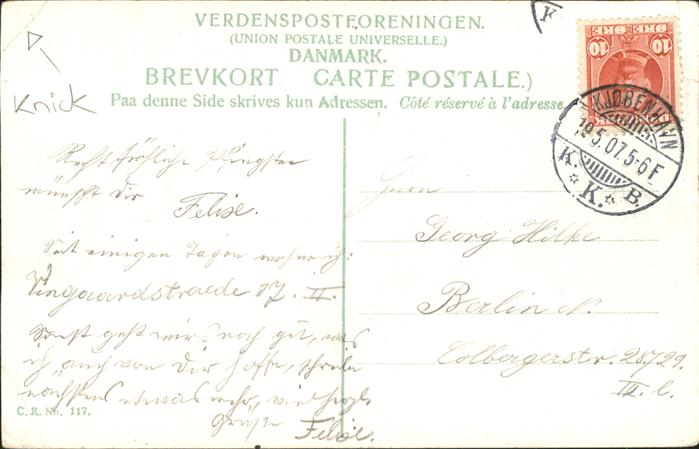 VERDENSPOSTFORENINGEN.
(UNION POSTALE UNIVERSELLE.)
DANMARK.
BREVKORT CARTE POSTALE.)
Paa denne Side skrives kun Adressen. Côté réservé à l'adresse.
Knick
10 10
KJØBENHAVN
19.5.07.5-6F
K. K. B.
K
Recht fröhliche Pfingsten
wünscht Dir
Felix.
Seit einigen Tagen wohne ich:
Vingaardstraede 17. II.
Sonst geht mir's noch gut, was
ich auch von Dir hoffe, schreibe
nächstens etwas mehr, viel
Grüße Felix.
Herrn
Georg Hilke
Berlin N.
Colbergerstr. 28/29.
III. l.
C.R. No. 117.